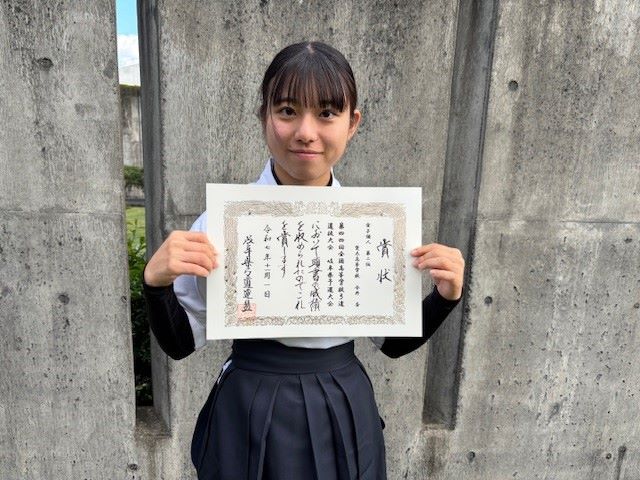 賞状
女子個人 第二位
第四四回全国高等学校弓道
選抜大会 岐阜県予選大会
において頭書の成績
を収められたのでこれ
を賞します
令和七年十一月一日
岐阜県弓道連盟